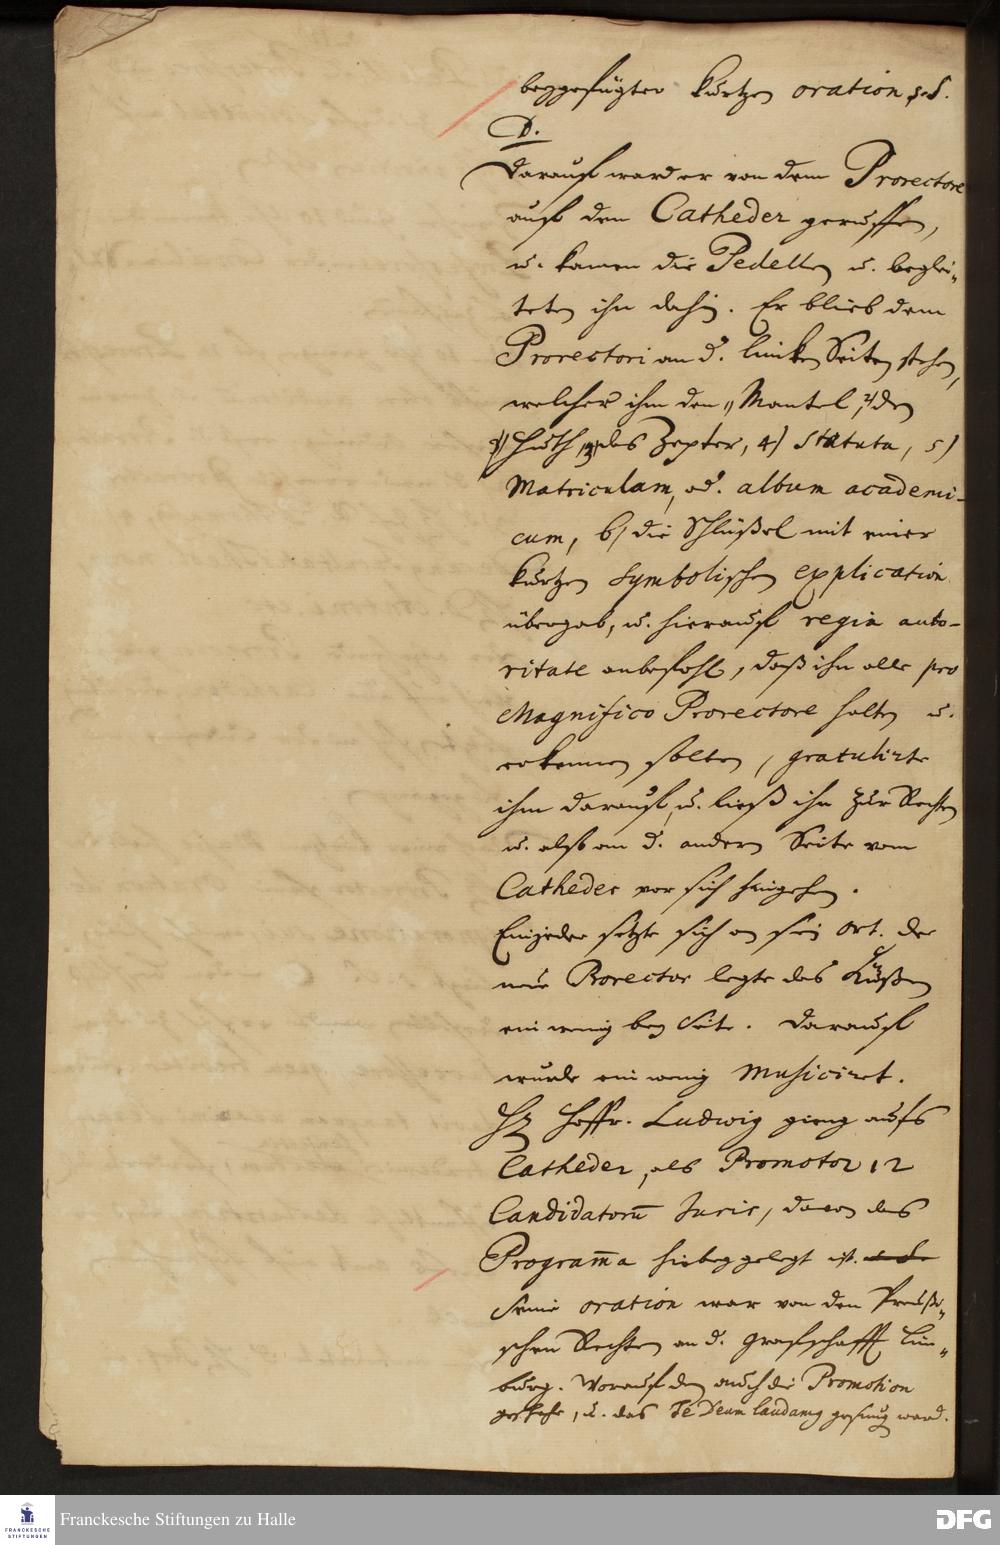 beygefügter kurtzen oration s. S.
D.
Darauf ward er von dem Prorectore
auf den Catheder geruffen,
u. kamen die Pedellen u. beglei-
teten ihn dahin. Er blieb dem
Prorectori an d. lincken Seiten stehen,
welcher ihm den 1) Mantel, 2) den
Huth, 3) das Zepter, 4) Statuta, 5)
Matriculam, od. album academi-
cum, 6) die Schlüßel mit einer
kurtzen symbolischen explication
übergab, u. hierauf regia auto-
ritate anbefohl, daß ihn alle pro
Magnifico Prorectore halten u.
erkennen solten, gratulirte
ihm darauf, u. ließ ihn zur Rechten
u. alß an d. andern Seite vom
Catheder vor sich hingehen.
Ein jeder setzte sich an sein ort. der
neue Prorector legte das Küßen
ein wenig bey Seite. Darauf
wurde ein wenig musiciret.
H. Hoffr. Ludwig gieng aufs
Catheder, als Promotor 12
Candidatorū Juris, davon das
Programa hiebey gelegt ist.
Seine oration war von den Preußi-
schen Rechten an d. Grafschafft Lim-
burg. Worauf den auch die Promotion
geschehe, u. das Te Deum laudamg gesung ward.
Franckesche Stiftungen zu Halle
FRANCKESCHE
STIFTUNGEN
DFG